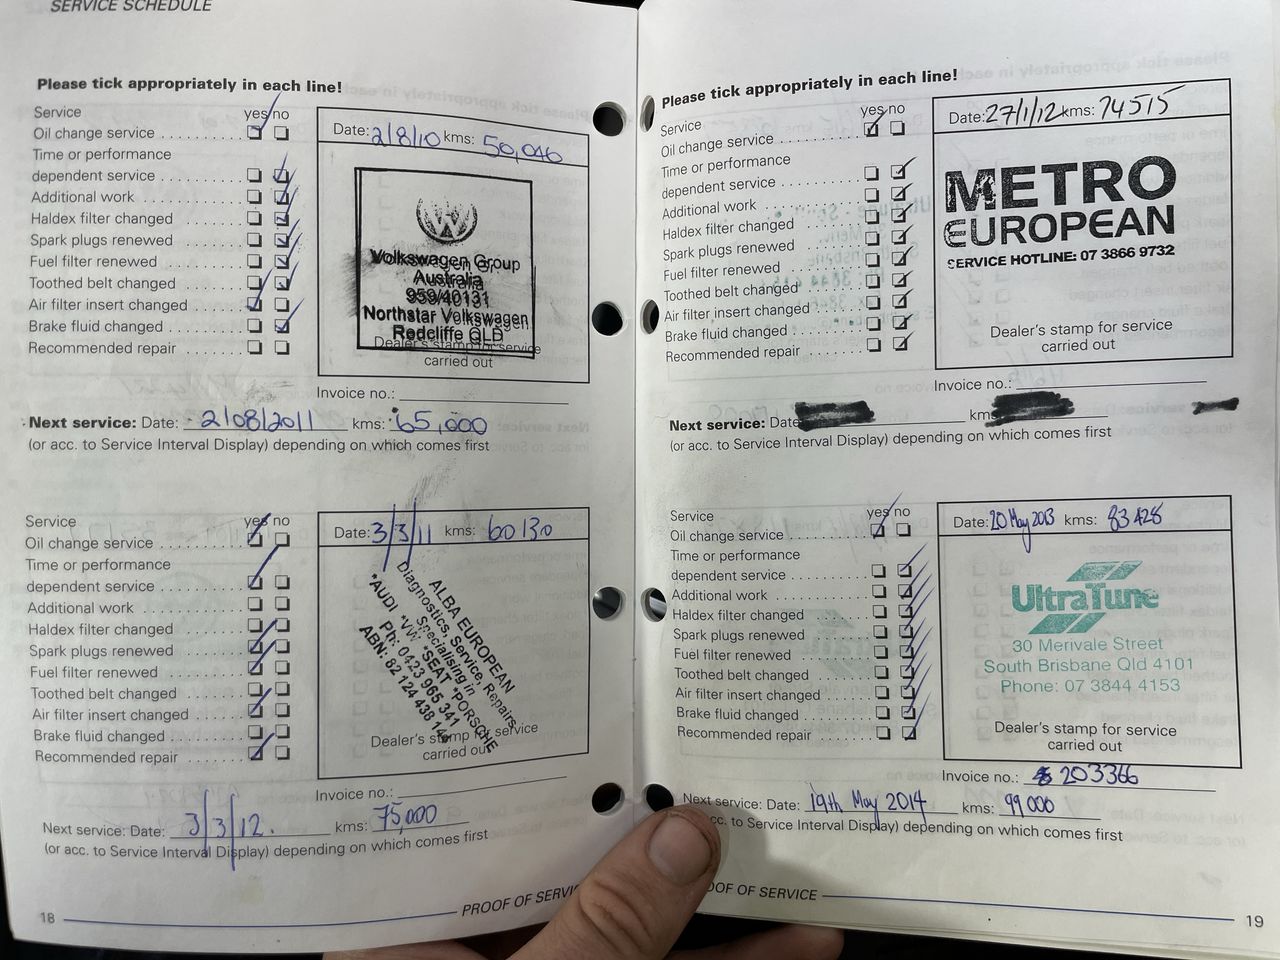 SERVICE SCHEDULE
Please tick appropriately in each line!
Service yes no
Oil change service
Time or performance
dependent service
Additional work
Haldex filter changed
Spark plugs renewed
Fuel filter renewed
Toothed belt changed
Air filter insert changed
Brake fluid changed
Recommended repair
Date: 2/8/10 kms: 50,046
Volkswagen Group
Australia
959/40131
Northstar Volkswagen
Redcliffe QLD
Dealer's stamp for service
carried out
Invoice no.:
Next service: Date: 2/08/2011 kms: 65,000
(or acc. to Service Interval Display) depending on which comes first
Service yes no
Oil change service
Time or performance
dependent service
Additional work
Haldex filter changed
Spark plugs renewed
Fuel filter renewed
Toothed belt changed
Air filter insert changed
Brake fluid changed
Recommended repair
Date: 3/3/11 kms: 60130
ALBA EUROPEAN
Diagnostics, Service, Repairs
Specialising in
*AUDI *VW *SEAT *PORSCHE
Ph: 0423 965 341
ABN: 82 124 438
Dealer's stamp for service
carried out
Invoice no.:
Next service: Date: 3/3/12. kms: 75,000
(or acc. to Service Interval Display) depending on which comes first
18 PROOF OF SERVIC
Please tick appropriately in each line!
Service yes no
Oil change service
Time or performance
dependent service
Additional work
Haldex filter changed
Spark plugs renewed
Fuel filter renewed
Toothed belt changed
Air filter insert changed
Brake fluid changed
Recommended repair
Date: 27/1/12 kms: 74515
METRO
EUROPEAN
SERVICE HOTLINE: 07 3866 9732
Dealer's stamp for service
carried out
Invoice no.:
Next service: Date km
(or acc. to Service Interval Display) depending on which comes first
Service yes no
Oil change service
Time or performance
dependent service
Additional work
Haldex filter changed
Spark plugs renewed
Fuel filter renewed
Toothed belt changed
Air filter insert changed
Brake fluid changed
Recommended repair
Date: 20 May 2013 kms: 83428
UltraTune
30 Merivale Street
South Brisbane Qld 4101
Phone: 07 3844 4153
Dealer's stamp for service
carried out
Invoice no.: 203366
Next service: Date: 19th May 2014 kms: 99000
acc. to Service Interval Display) depending on which comes first
OOF OF SERVICE 19